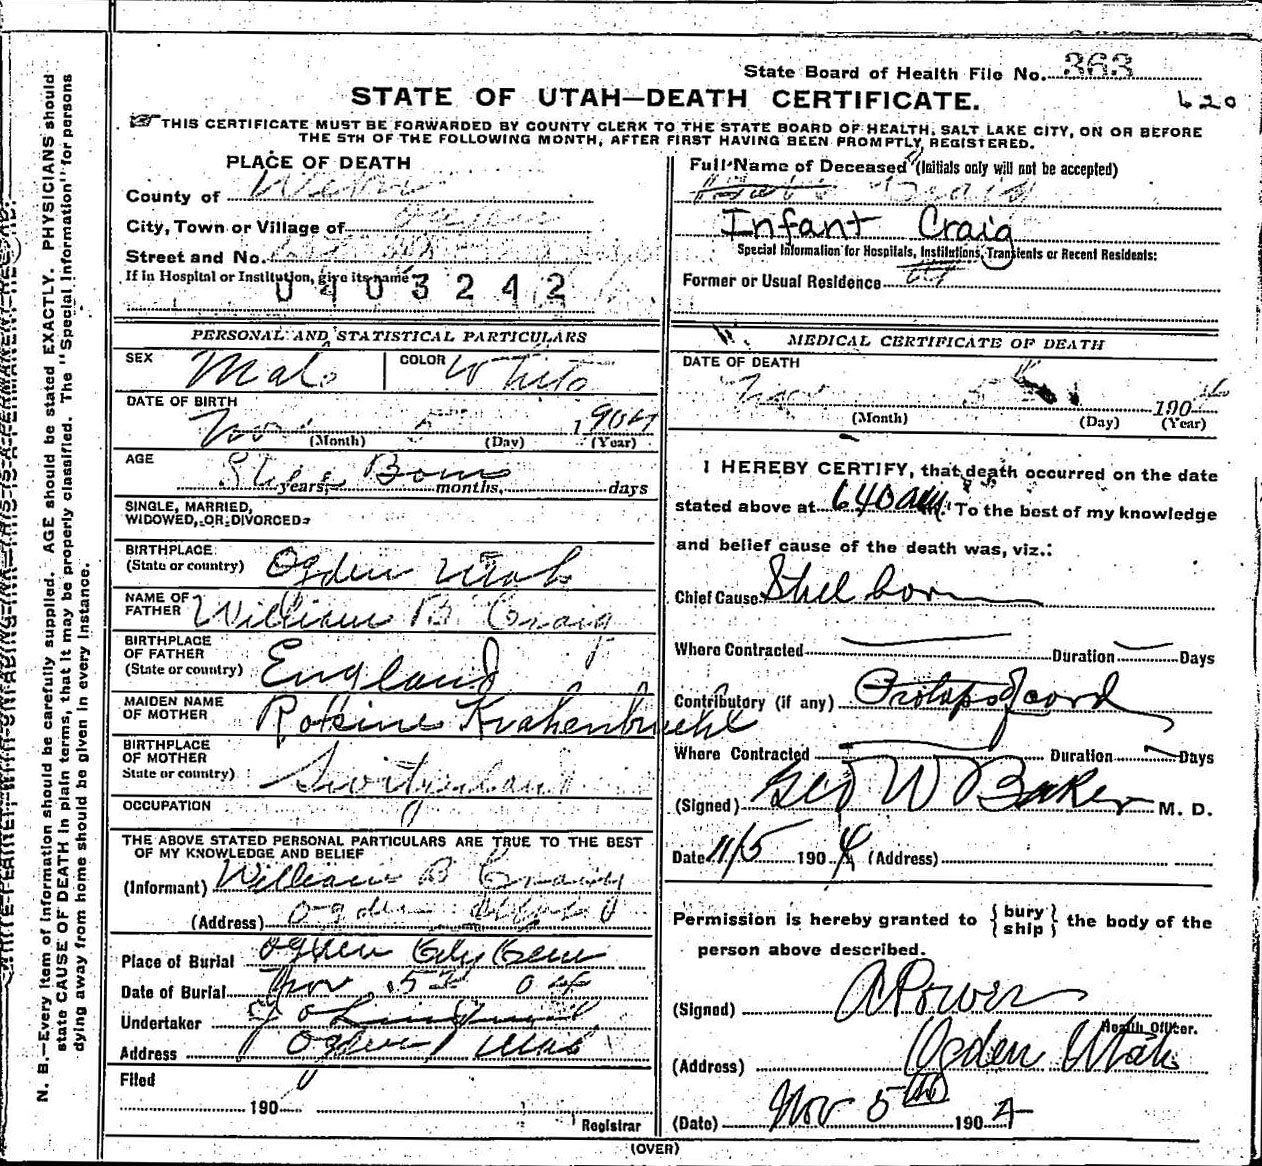 State Board of Health File No. 363
620
STATE OF UTAH—DEATH CERTIFICATE.
THIS CERTIFICATE MUST BE FORWARDED BY COUNTY CLERK TO THE STATE BOARD OF HEALTH, SALT LAKE CITY, ON OR BEFORE
THE 5TH OF THE FOLLOWING MONTH, AFTER FIRST HAVING BEEN PROMPTLY REGISTERED.
PLACE OF DEATH
County of Weber
City, Town or Village of Ogden
Street and No.
If in Hospital or Institution, give its name
0103242
Full Name of Deceased (Initials only will not be accepted)
Infant Craig
Special Information for Hospitals, Institutions, Transients or Recent Residents:
Former or Usual Residence
PERSONAL AND STATISTICAL PARTICULARS
SEX Male COLOR White
DATE OF BIRTH
Nov 5 1904
(Month) (Day) (Year)
AGE
Born
years, months, days
SINGLE, MARRIED,
WIDOWED, OR DIVORCED
BIRTHPLACE
(State or country) Ogden Utah
NAME OF
FATHER William B Craig
BIRTHPLACE
OF FATHER
(State or country) England
MAIDEN NAME
OF MOTHER Krahenbuehl
BIRTHPLACE
OF MOTHER
State or country) Switzerland
OCCUPATION
THE ABOVE STATED PERSONAL PARTICULARS ARE TRUE TO THE BEST
OF MY KNOWLEDGE AND BELIEF
(Informant) William B Craig
(Address) Ogden Utah
Place of Burial Ogden City Cem
Date of Burial Nov 5th 04
Undertaker
Address Ogden Utah
Filed
190
Registrar
MEDICAL CERTIFICATE OF DEATH
DATE OF DEATH
Nov 5 190
(Month) (Day) (Year)
I HEREBY CERTIFY, that death occurred on the date
stated above at 640 am. To the best of my knowledge
and belief cause of the death was, viz.:
Chief Cause Still born
Where Contracted Duration Days
Contributory (if any) Prolapse of cord
Where Contracted Duration Days
(Signed) Geo W Baker M. D.
Date 11/5 1904 (Address)
Permission is hereby granted to { bury ship } the body of the
person above described.
(Signed) A Power
Health Officer.
(Address) Ogden Utah
(Date) Nov 5th 1904
(OVER)
N. B.—Every item of information should be carefully supplied. AGE should be stated EXACTLY. PHYSICIANS should
state CAUSE OF DEATH in plain terms, that it may be properly classified. The "Special Information" for persons
dying away from home should be given in every instance.
WRITE PLAINLY WITH UNFADING INK—THIS IS A PERMANENT RECORD.